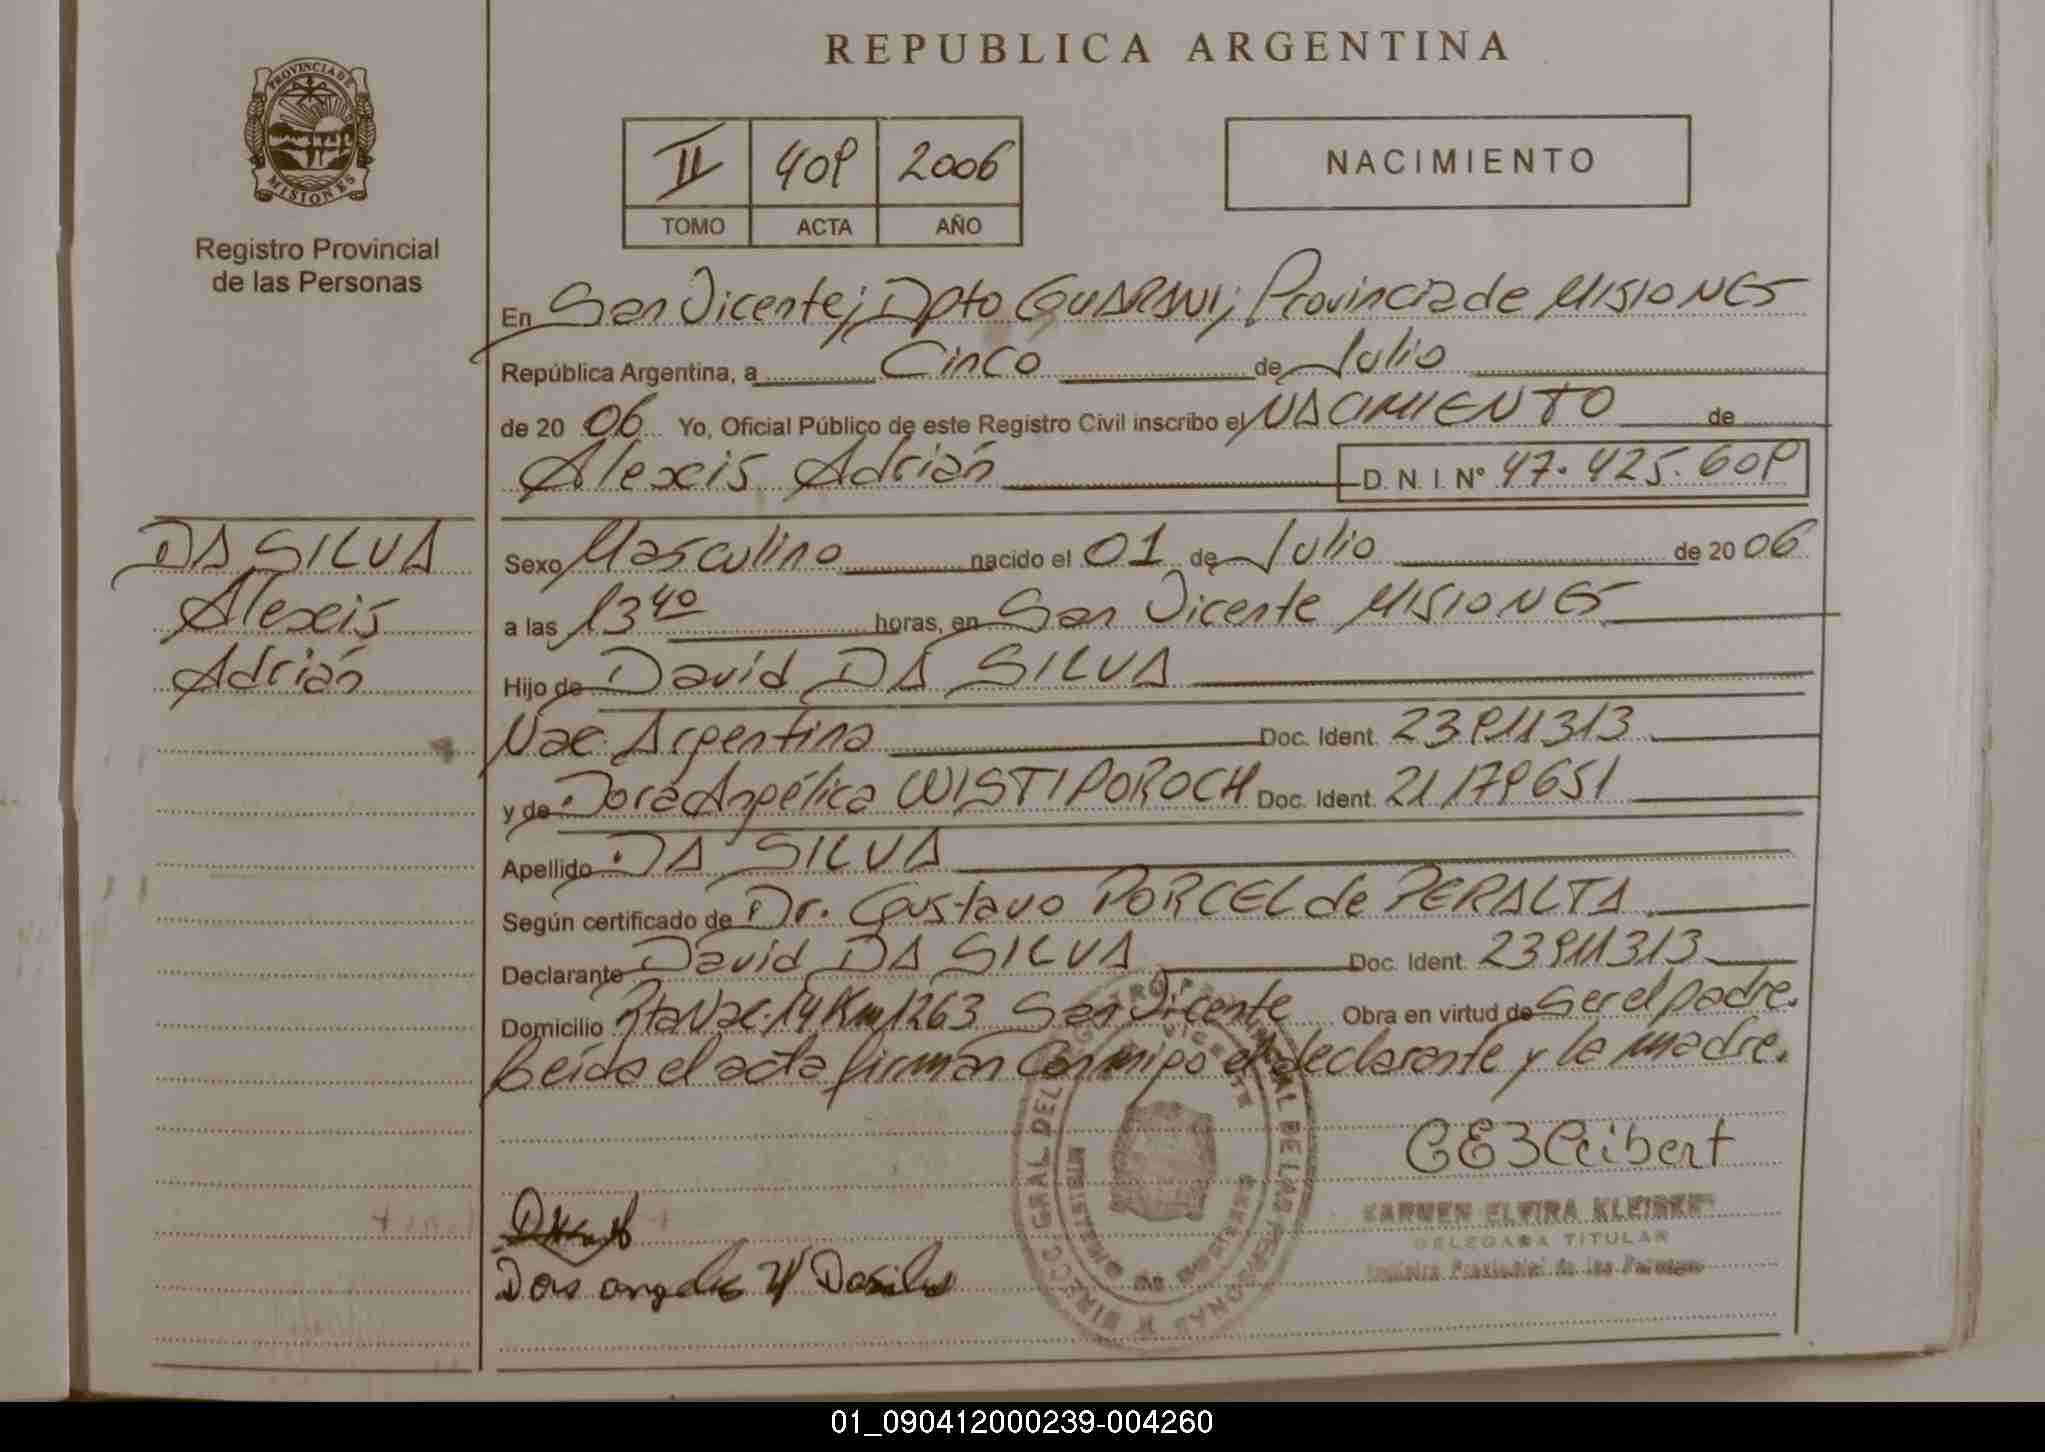 REPUBLICA ARGENTINA
PROVINCIA DE
MISIONES
Registro Provincial
de las Personas
II 409 2006
TOMO ACTA AÑO
NACIMIENTO
En San Vicente; Dpto GUARANI; Provincia de MISIONES
República Argentina, a Cinco de Julio
de 20 06 Yo, Oficial Público de este Registro Civil inscribo el NACIMIENTO de
Alexis Adrián D. N. I. Nº 47.425.609
DA SILVA
Alexis
Adrián
Sexo Masculino nacido el 01 de Julio de 20 06
a las 13 40 horas, en San Vicente MISIONES
Hijo de David DA SILVA
Nac. Argentina Doc. Ident. 23911313
y de Dora Angélica WISTIPOROCH Doc. Ident. 21179651
Apellido DA SILVA
Según certificado de Dr. Gustavo PORCEL de PERALTA
Declarante David DA SILVA Doc. Ident. 23911313
Domicilio Rta Nac. 14 Km 1263 San Vicente Obra en virtud de Ser el padre.
Leída el acta firman conmigo el declarante y la madre.
CARMEN ELVIRA KLEIBERT
DELEGADA TITULAR
Registro Provincial de las Personas
01_090412000239-004260